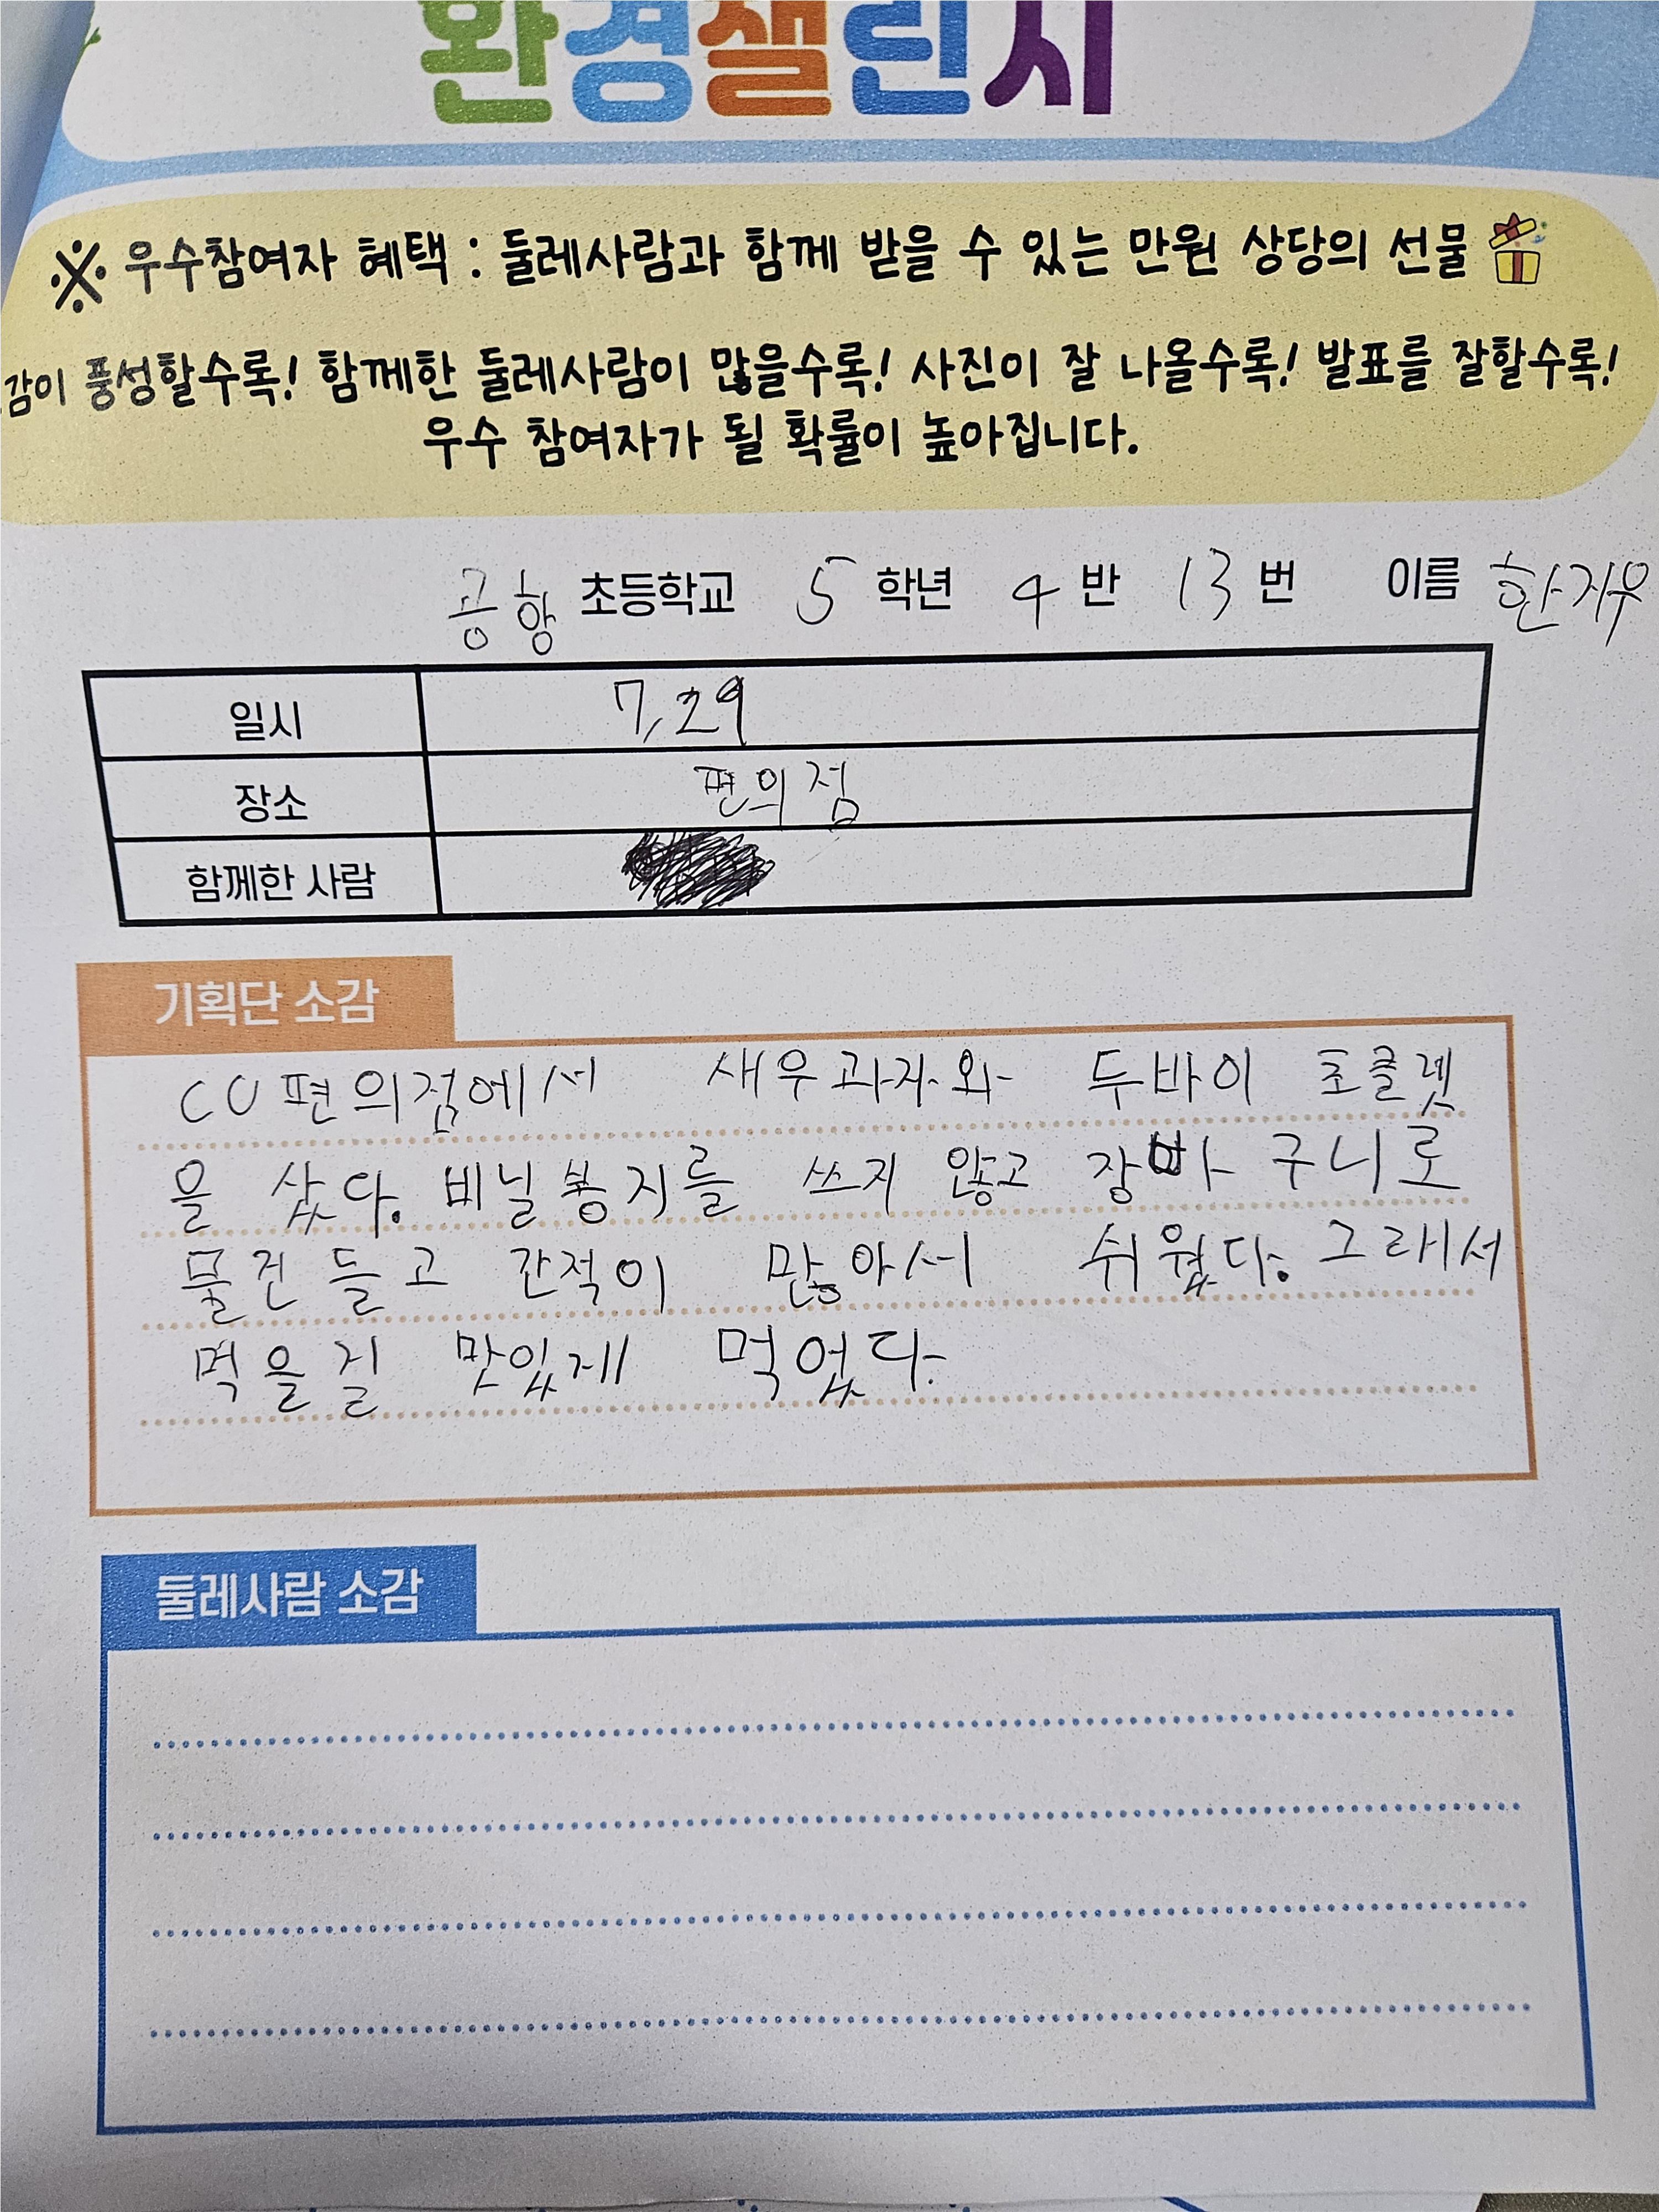 환경챌린지
※ 우수참여자 혜택 : 둘레사람과 함께 받을 수 있는 만원 상당의 선물
감이 풍성할수록! 함께한 둘레사람이 많을수록! 사진이 잘 나올수록! 발표를 잘할수록!
우수 참여자가 될 확률이 높아집니다.
공항 초등학교 5 학년 4 반 13 번 이름 한지우
일시 7,29
장소 편의점
함께한 사람
기획단 소감
CU 편의점에서 새우과자와 두바이 초클렛
을 샀다. 비닐봉지를 쓰지 않고 장바구니로
물건 들고 간적이 많아서 쉬웠다. 그래서
먹을길 맛있게 먹었다
둘레사람 소감